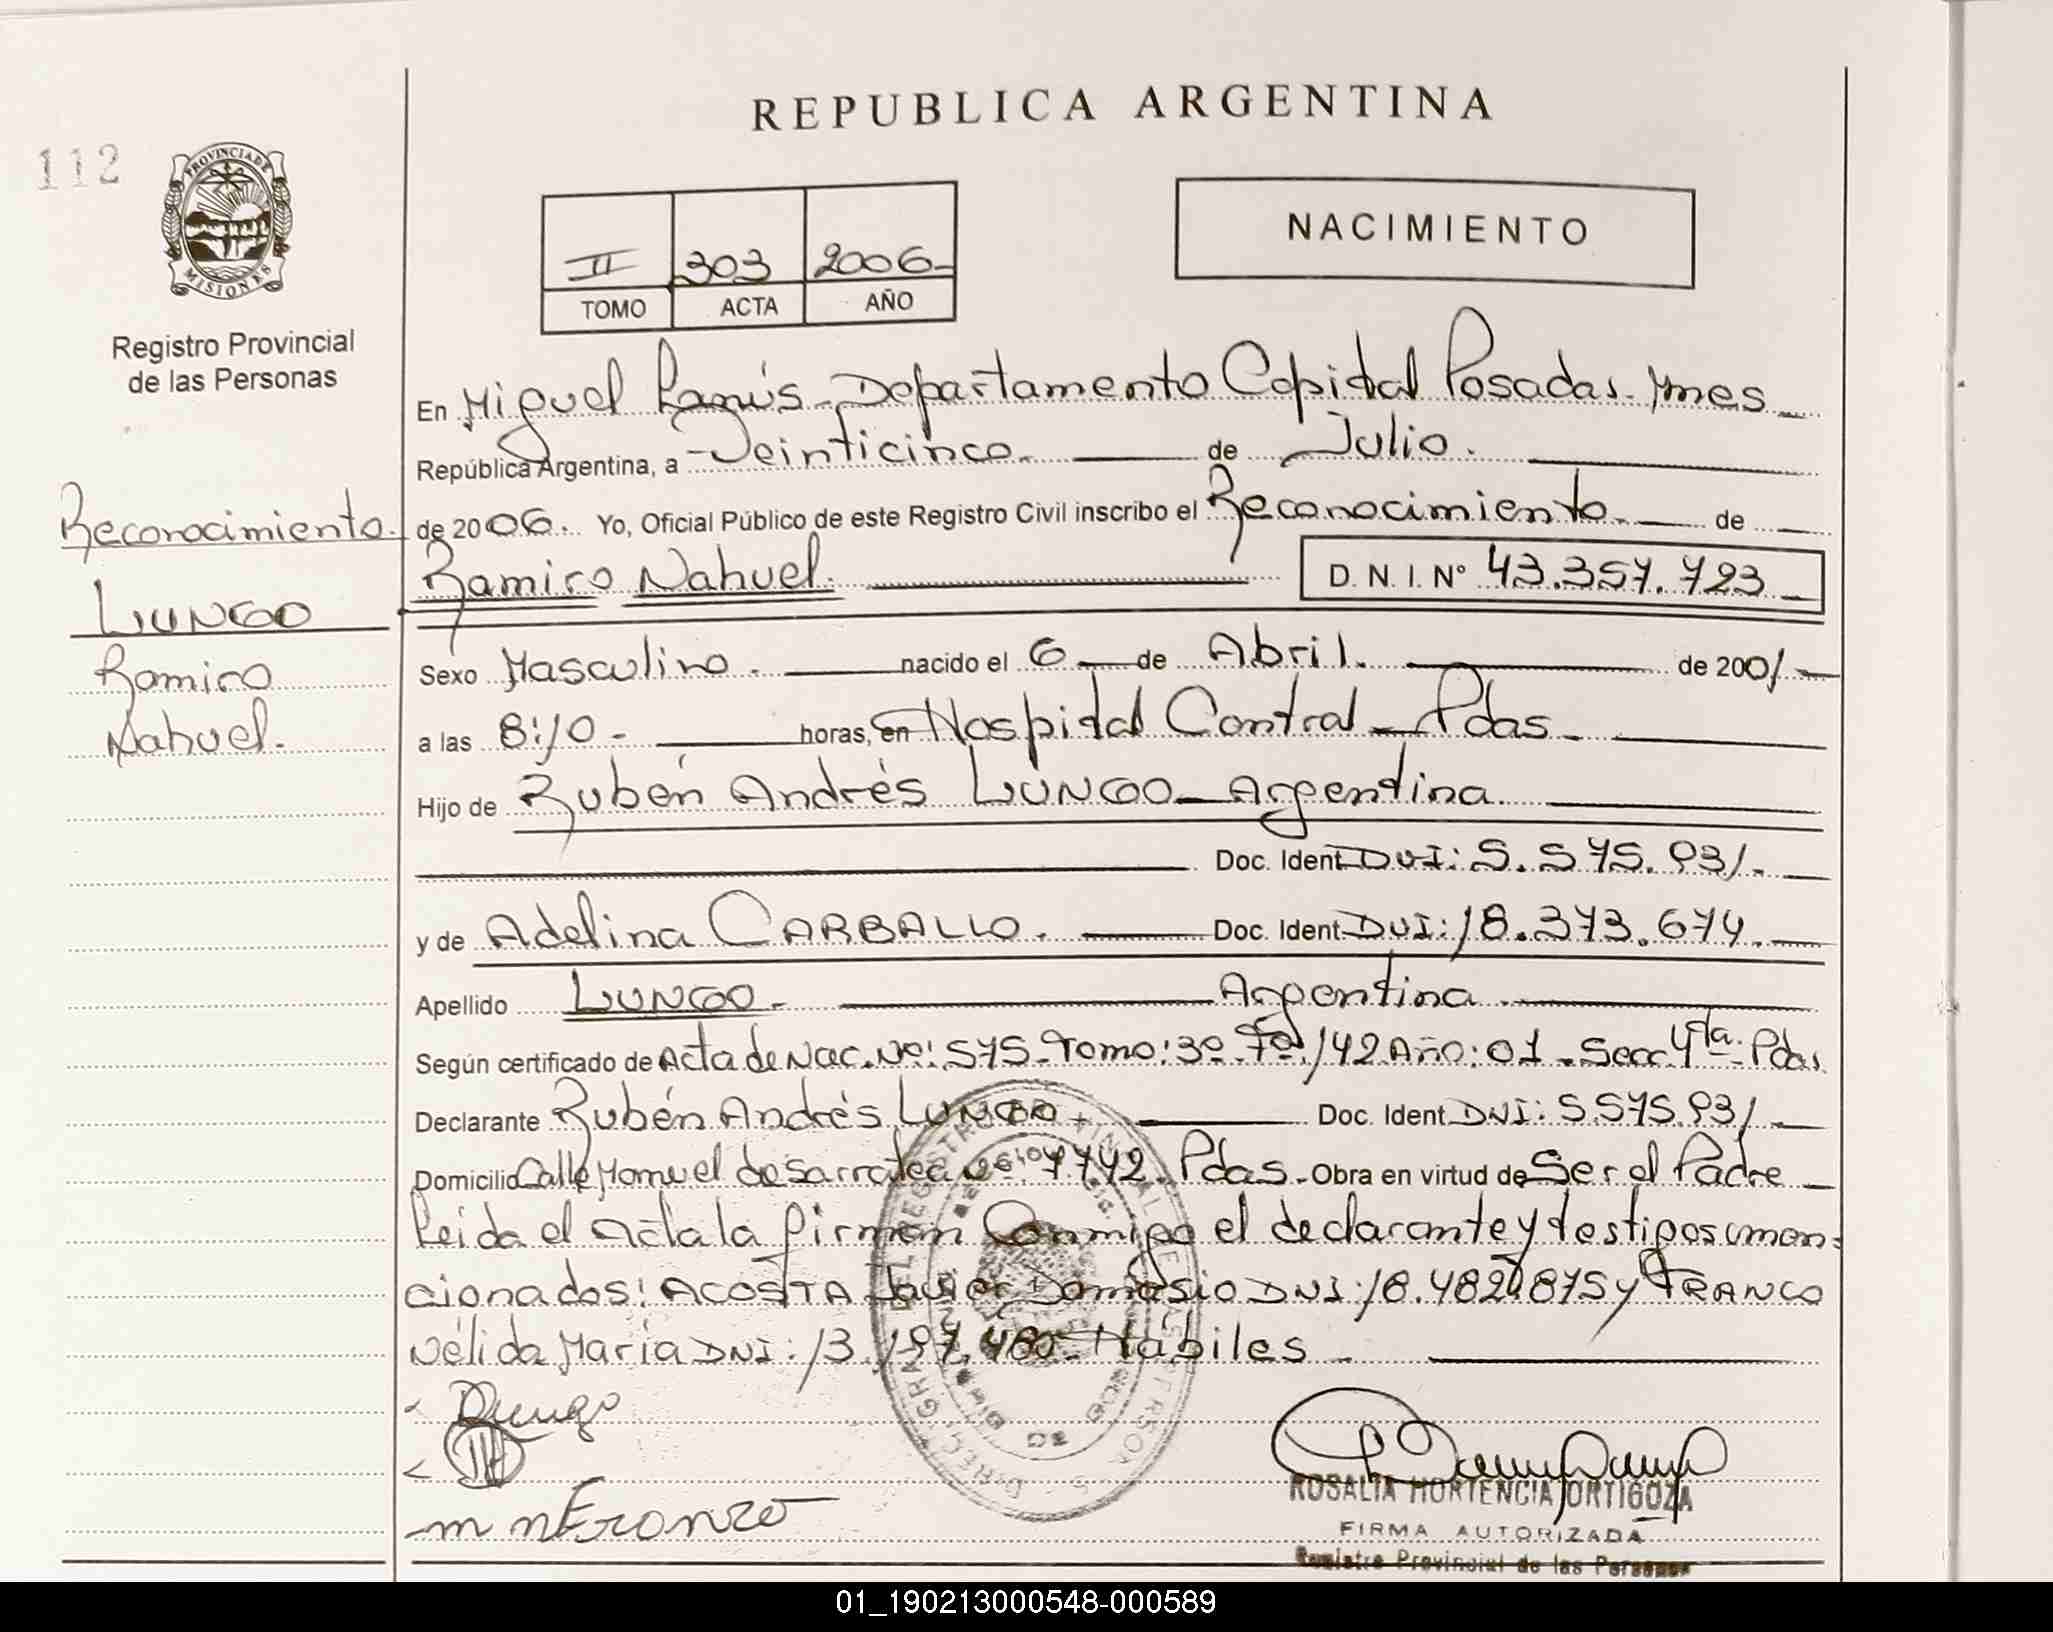 REPUBLICA ARGENTINA
112
PROVINCIA DE
MISIONES
Registro Provincial
de las Personas
II 303 2006-
TOMO ACTA AÑO
NACIMIENTO
En Miguel Lanús - Departamento Capital Posadas - Mnes
República Argentina, a Veinticinco. de Julio.
de 2006. Yo, Oficial Público de este Registro Civil inscribo el Reconocimiento. de
Ramiro Nahuel. D. N. I. Nº 43.357.723
Reconocimiento.
LUNGO
Ramiro
Nahuel.
Sexo Masculino. nacido el 6 de Abril. de 2001
a las 8:10 - horas, en Hospital Central - Pdas
Hijo de Rubén Andrés LUNGO - Argentina
Doc. Ident DNI: 5.575.931.
y de Adelina CARBALLO. Doc. Ident DNI: 18.373.674.
Apellido LUNGO. Argentina
Según certificado de Acta de Nac. Nº: 575 - Tomo: 3º - Fº 142 Año: 01 - Secc. 4ta. Pdas
Declarante Rubén Andrés LUNGO Doc. Ident DNI: 5.575.931
Domicilio Calle Manuel de Sarratea Nº 7742. Pdas. Obra en virtud de Ser el Padre
Leida el Acta la firman Conmigo el declarante y testigos men-
cionados: ACOSTA Javier Damasio DNI: 18.482.875 y FRANCO
Nélida María DNI: 13.197.480 - Hábiles
ROSALIA HORTENCIA ORTIGOZA
FIRMA AUTORIZADA
Registro Provincial de las Personas
01_190213000548-000589